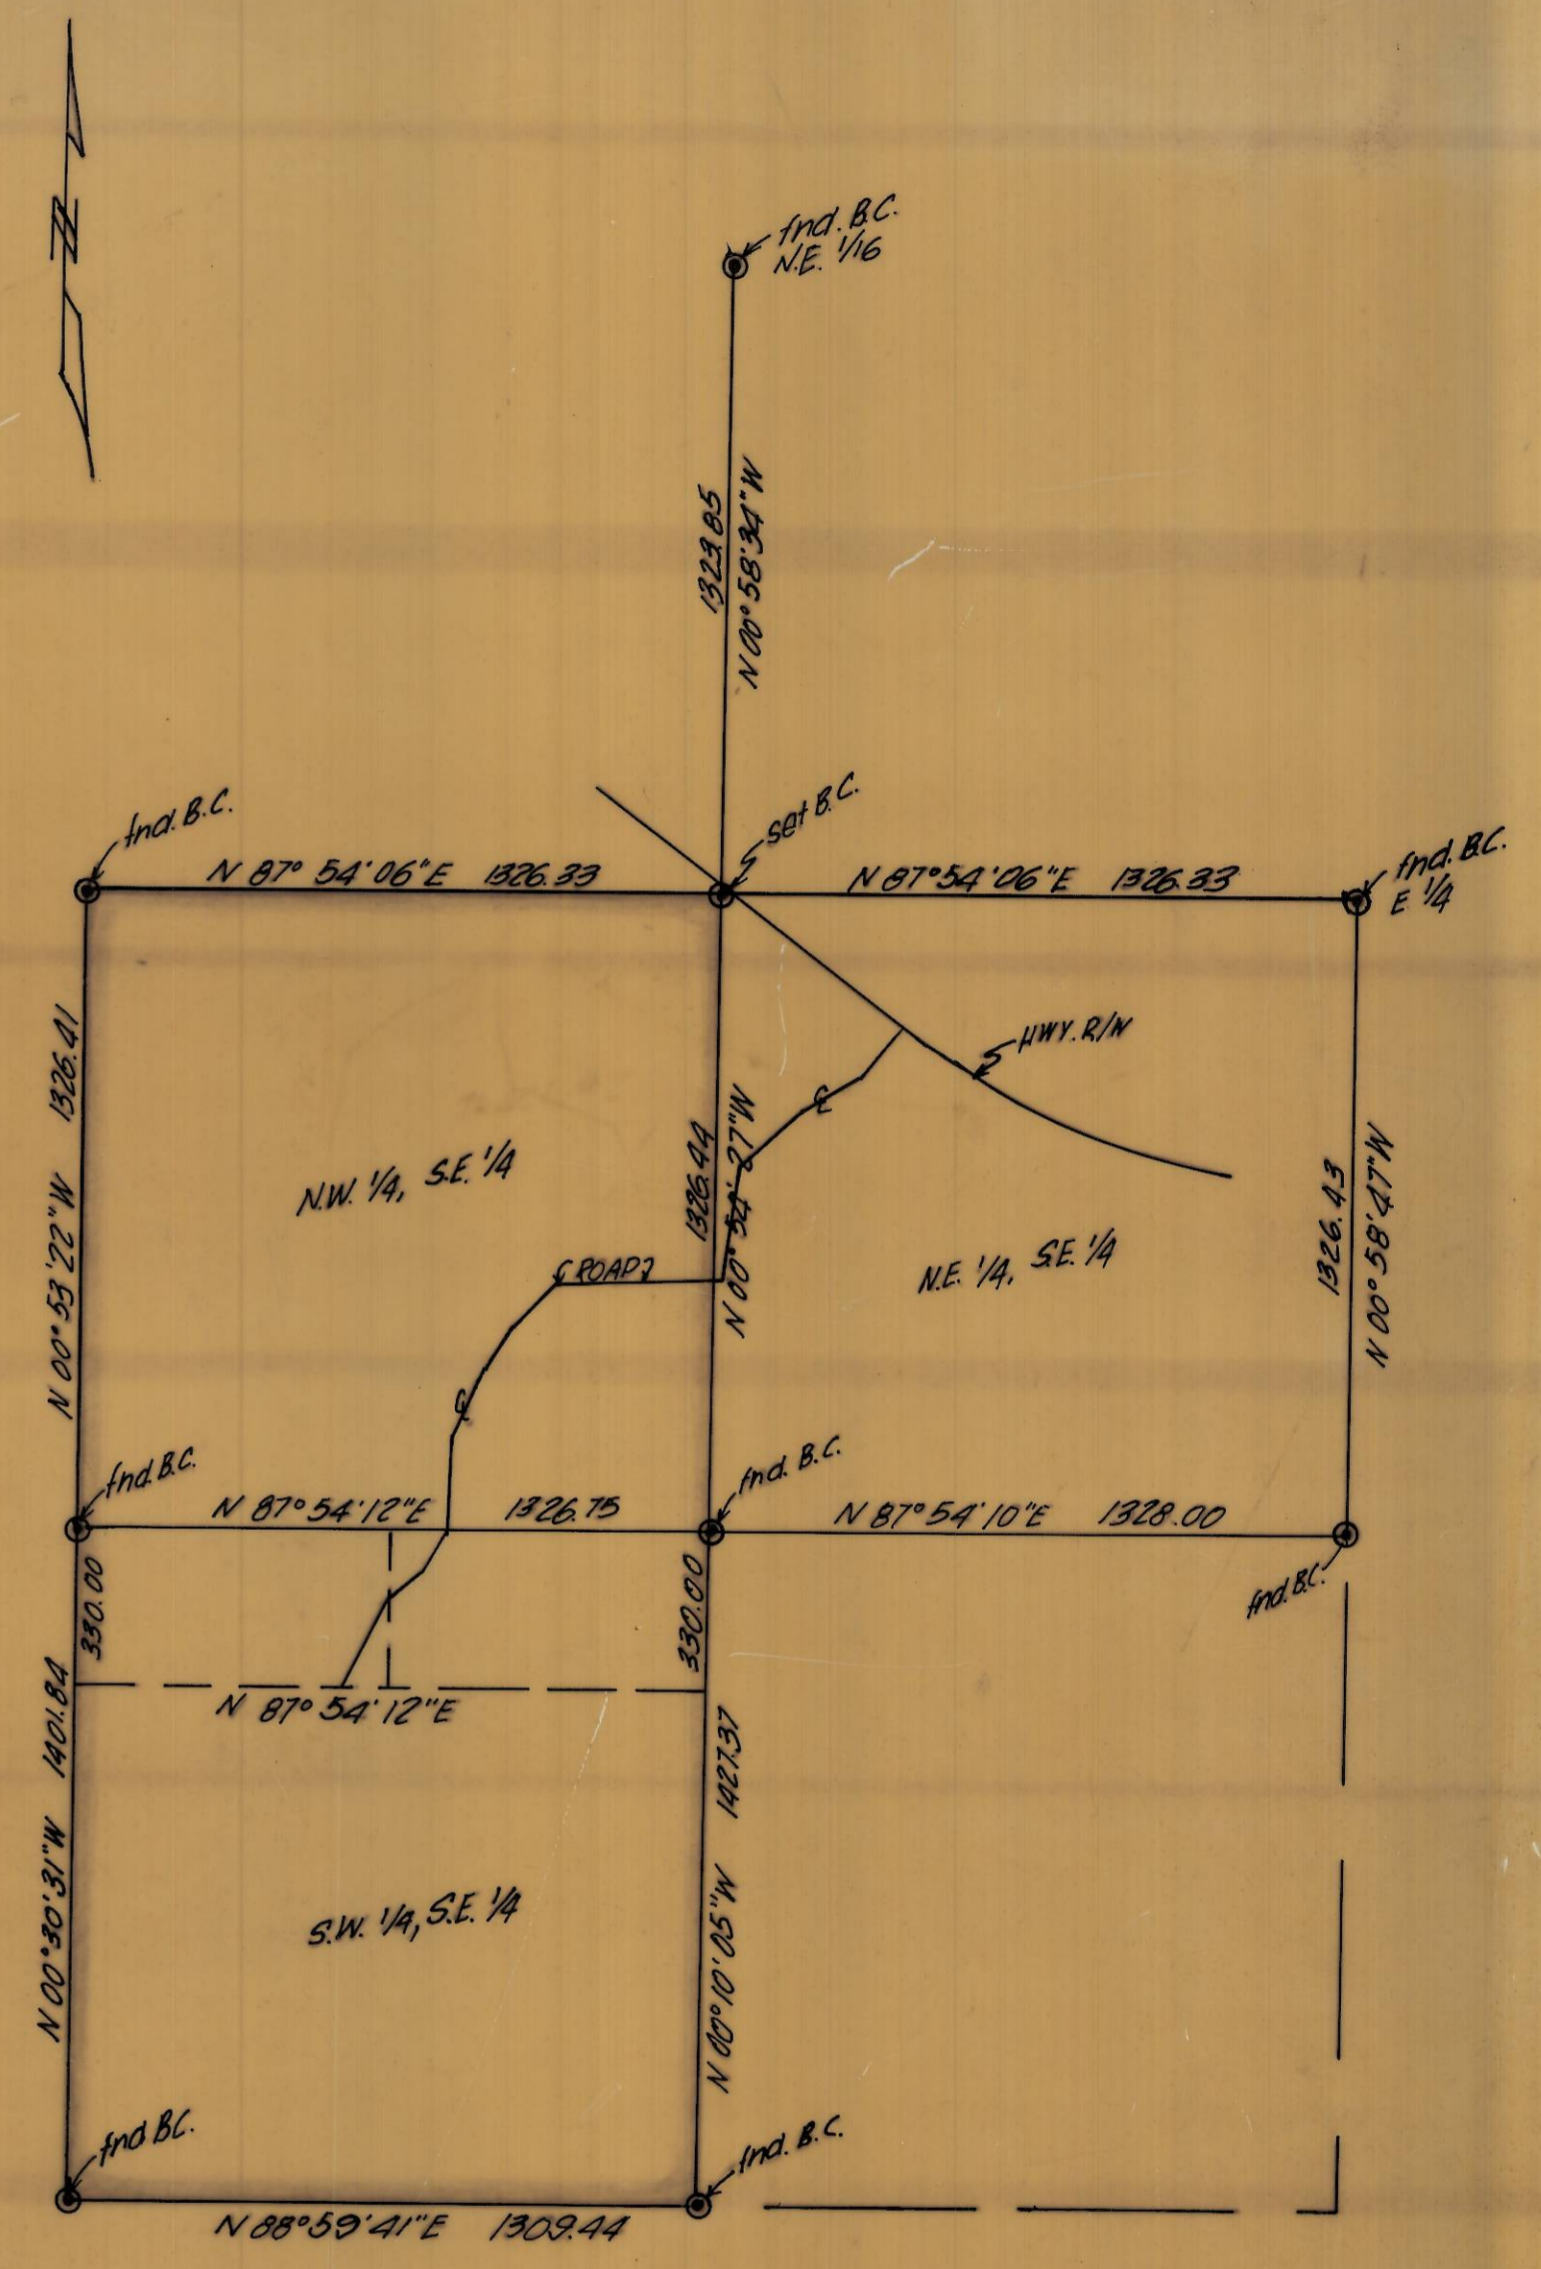 N
fnd. B.C.
N.E. 1/16
1323.85
N 00° 58' 34" W
fnd. B.C.
set B.C.
fnd. B.C.
E 1/4
N 87° 54' 06" E 1326.33
N 87° 54' 06" E 1326.33
N 00° 53' 22" W 1326.41
HWY. R/W
℄
1326.44
N 00° 54' 27" W
N.W. 1/4, S.E. 1/4
N.E. 1/4, S.E. 1/4
1326.43
N 00° 58' 47" W
ROAD
℄
fnd. B.C.
fnd. B.C.
N 87° 54' 12" E 1326.75
N 87° 54' 10" E 1328.00
fnd. B.C.
330.00
330.00
N 87° 54' 12" E
N 00° 30' 31" W 1401.84
N 00° 10' 05" W 1427.37
S.W. 1/4, S.E. 1/4
fnd B.C.
fnd. B.C.
N 88° 59' 41" E 1309.44